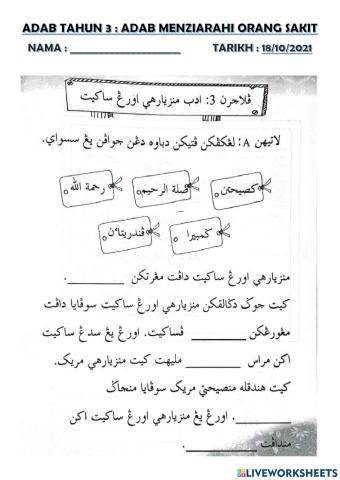 ADAB TAHUN 3 : ADAB MENZIARAHI ORANG SAKIT
NAMA : ____________________ TARIKH : 18/10/2021
ڤلاجرن 3: ادب منزيارهي اورڠ ساكيت
لاتيهن A: لڠكڤكن ڤتيكن دباوه دڠن جواڤن يڠ سسواي.
كصيحتن صلة الرحيم رحمة الله
ݢمبيرا ڤندريتاءن
منزيارهي اورڠ ساكيت داڤت مڠرتكن __________.
كيت جوݢ دݢالقكن منزيارهي اورڠ ساكيت سوڤايا داڤت
مڠورڠكن __________ ڤساكيت. اورڠ يڠ سدڠ ساكيت
اكن مراس __________ مليهت كيت منزيارهي مريك.
كيت هندقله منصيحتي مريك سوڤايا منجاݢ
__________. اورڠ يڠ منزيارهي اورڠ ساكيت اكن
منداڤت __________.
LIVEWORKSHEETS